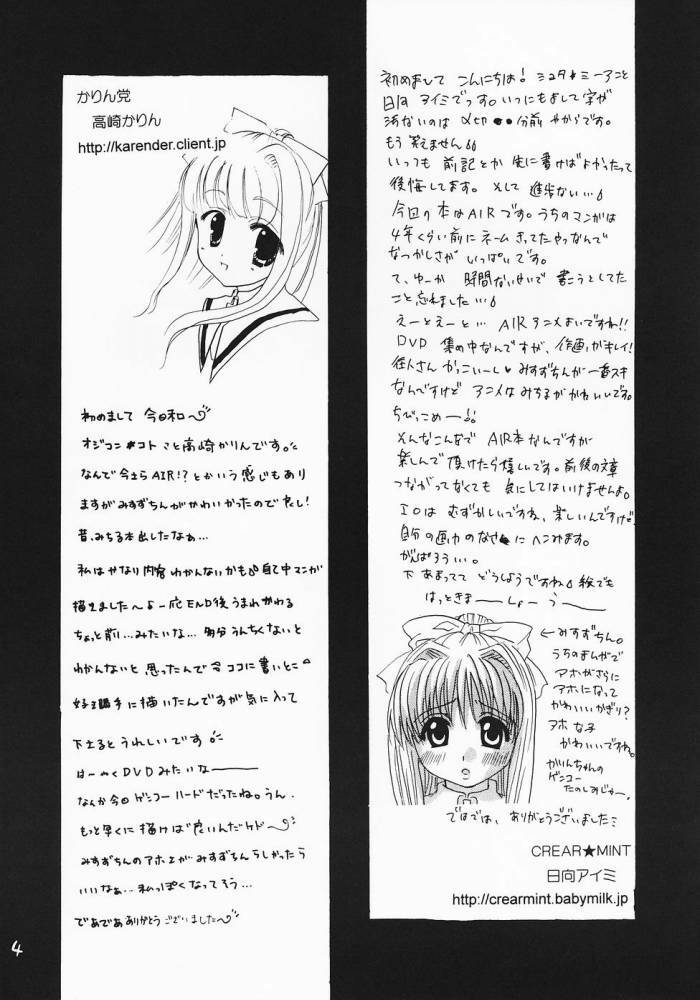 かりん党
高崎かりん
http://karender.client.jp
初めまして 今日和
オジコン＊コト こと高崎かりんです。
なんで今さらAIR!?とかいう感じもあり
ますがみすずちんがかわいかったので良し!
昔、みちる本出したなぁ…
私はかなり内容わかんないかも 自己中マンガ
描きました〜 一応END後うまれかわる
ちょっと前…みたいな… 多分うんちくないと
わかんないと思ったんで今ココに書いとこ
好き勝手に描いたんですが気に入って
下さるとうれしいです。
はーやくDVDみたいなー
なんか今回ゲンコーハードだったね。うん。
もっと早くに描けば良いんだケド
みすずちんのアホ上がみすずちんらしかったら
いいなぁ…私っぽくなってそう…
であであありがとうございました〜
4
初めまして こんにちは! ミュタ★ミーアこと
日向アイミでっす。いつにもまして字が
汚ないのは〆切●●分前だからです。
もう笑えません
いっつも前記とか先に書けばよかったって
後悔してます。そして進歩ない…
今回の本はAIRです。うちのマンガは
4年くらい前にネームきってたやつなんで
なつかしさがいっぱいです。
て、ゆーか 時間ないせいで書こうとしてた
こと忘れました…
えーとえーと… AIRアニメよいですね!!
DVD 集め中なんですが、作画がキレイ!
往人さんかっこいーし♥みすずちんが一番スキ
なんですけど アニメはみちるがかわいいです。
ちびっこめー!!
そんなこんなで AIR本なんですが
楽しんで頂けたら嬉しいです。前後の文章
つながってなくても 気にしてはいけませんよ。
IOはむずかしいですね、楽しいんですけど
自分の画力のなさにヘコみます。
がんばろうい。
下あまってて どうしようですね 絵でも
はっときまーしょーうー
←みすずちん。
うちのまんがで
アホがさらに
アホになって
かわいいかぎり?
アホな子
かわいいですね。
かりんちゃんの
ゲンコー
たのしみじゃー。
ではでは、ありがとうございました
CREAR★MINT
日向アイミ
http://crearmint.babymilk.jp